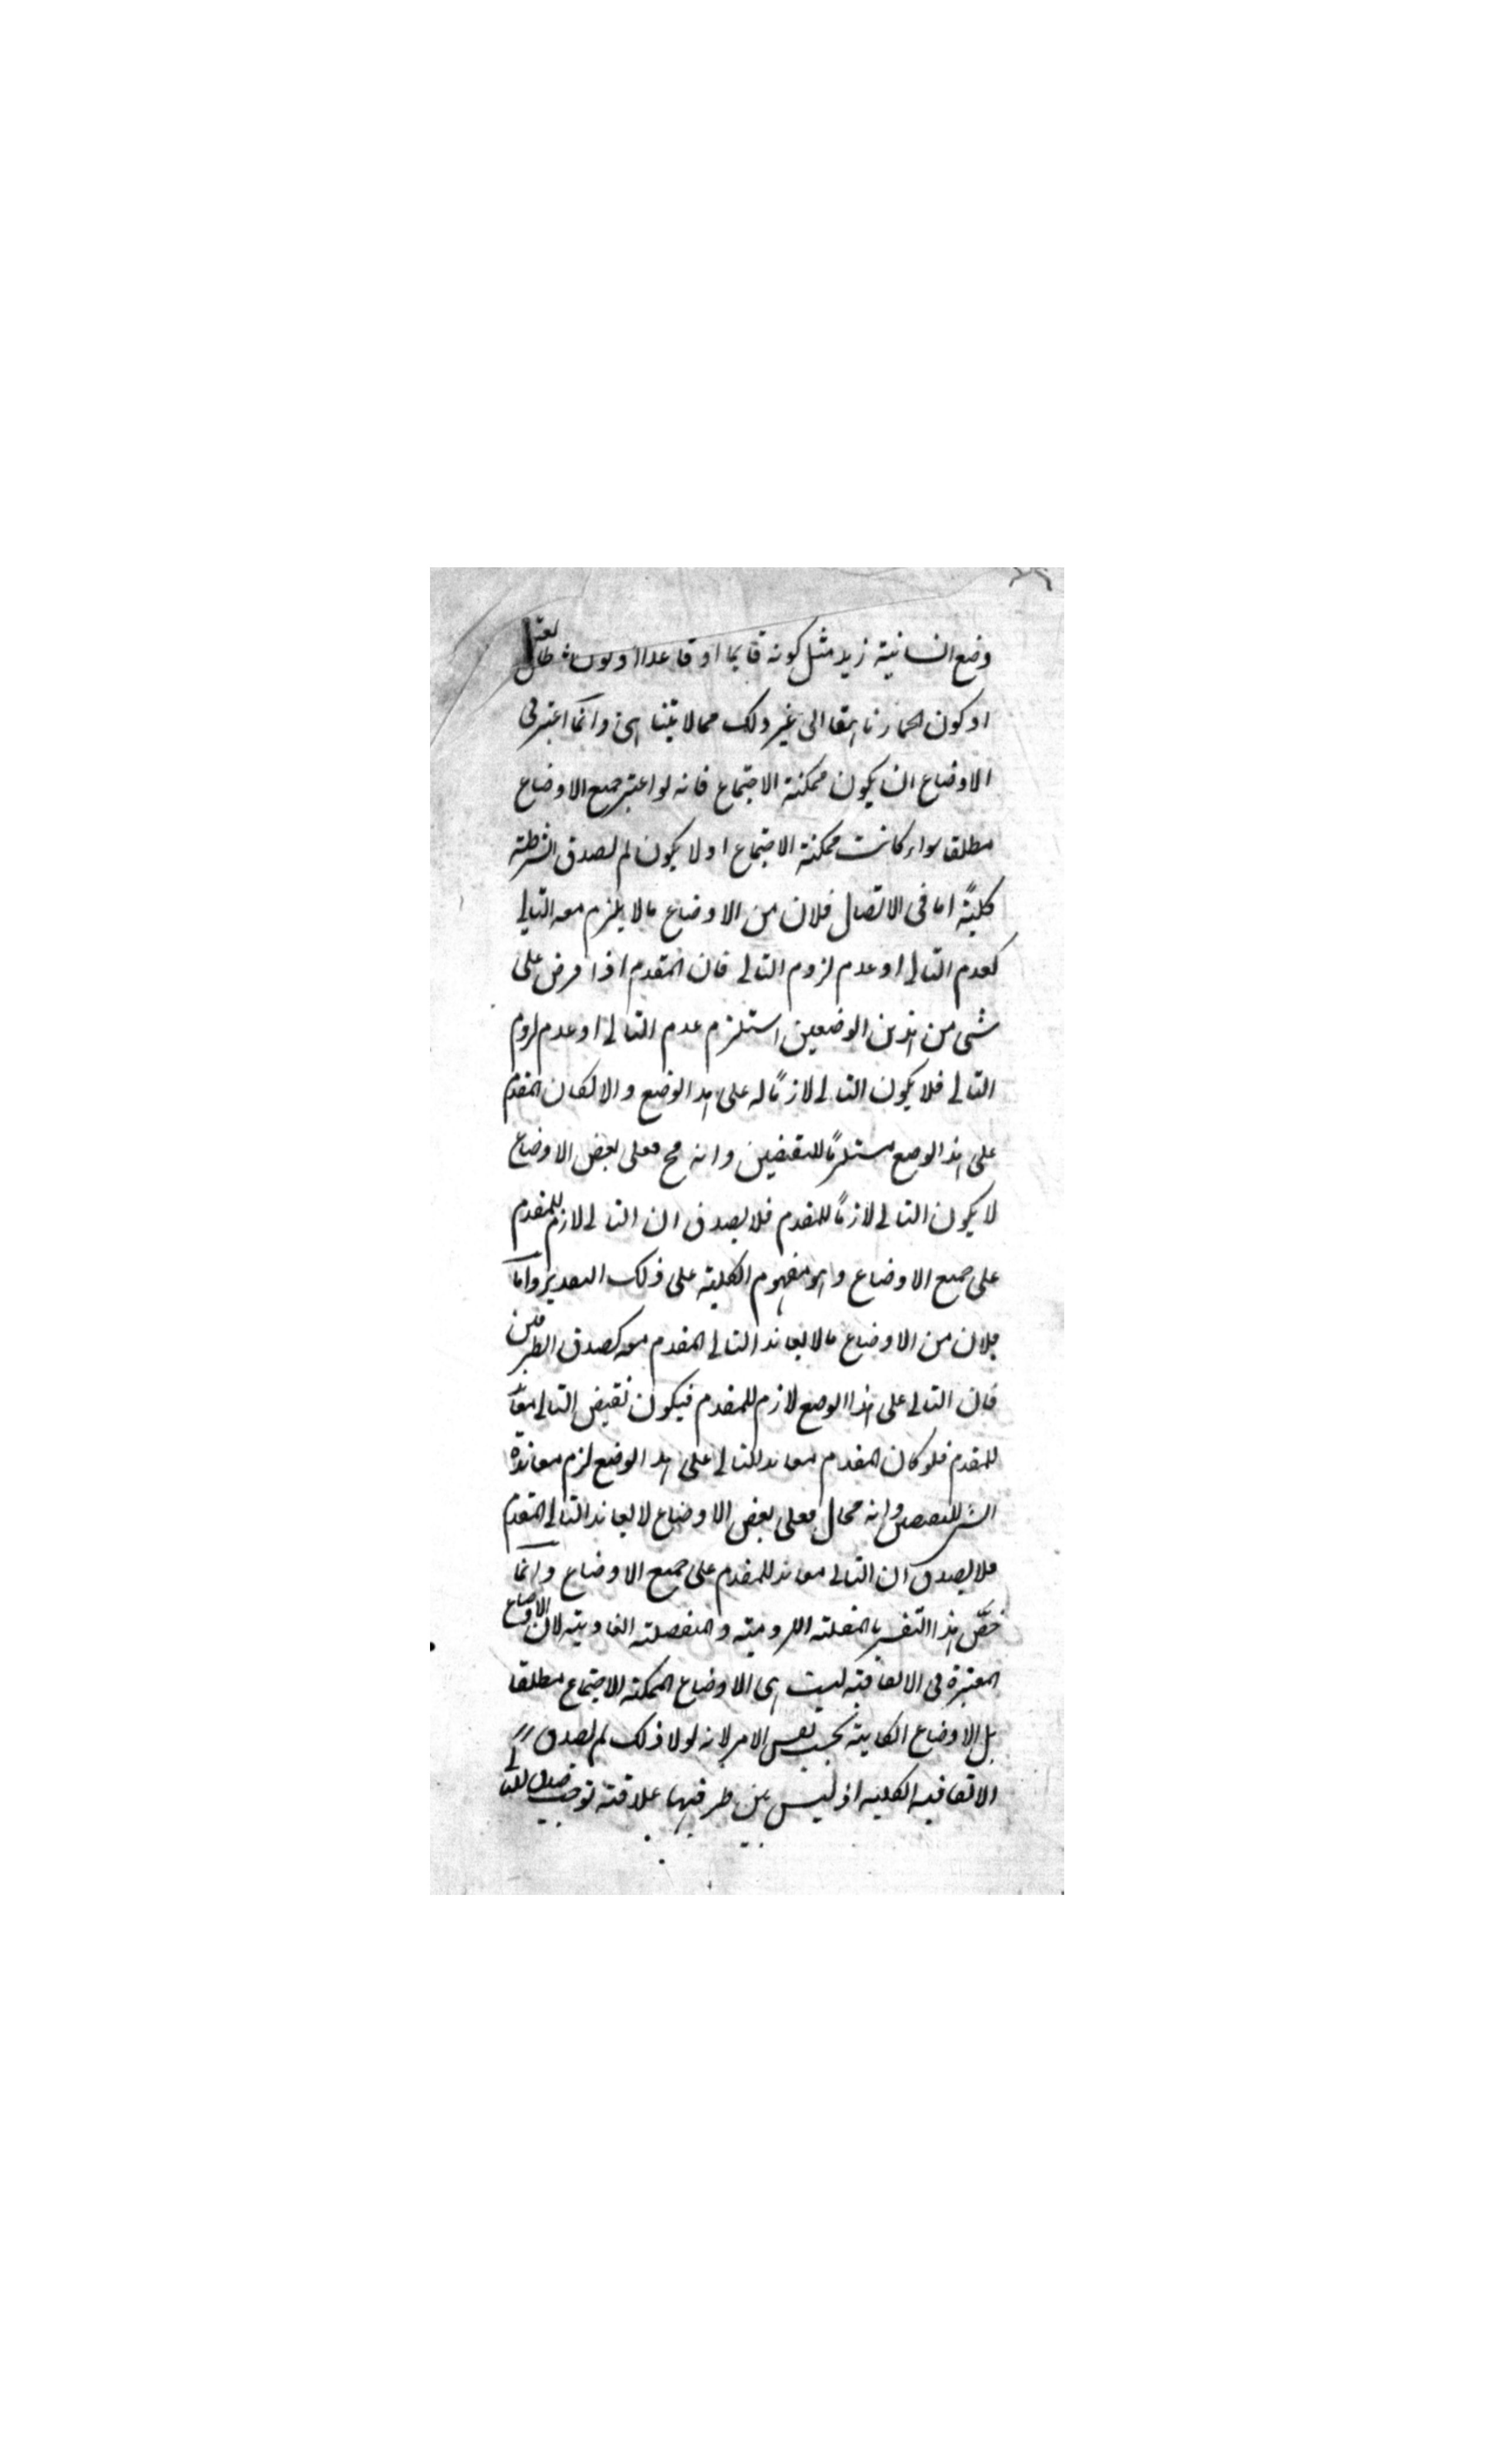 وضع انسانية زيد مثل كونه قايما او قاعدا او كون
او كون الحمار ناهقا الى غير ذلك مما لا يتناهى وانما اعتبر فى
الاوضاع ان يكون ممكنة الاجتماع فانه لو اعتبر جميع الاوضاع
مطلقا سواء كانت ممكنة الاجتماع او لا يكون لم يصدق الشرطية
كليةً اما فى الاتصال فلان من الاوضاع ما لا يلزم معه التالى
كعدم التالى او عدم لزوم التالى فان المقدم اذا فرض على
شى من هذين الوضعين استلزم عدم التالى او عدم لزوم
التالى فلا يكون التالى لازمًا له على هذا الوضع والا لكان المقدم
على هذا الوضع مستلزمًا للنقيضين وانه مح فعلى بعض الاوضاع
لا يكون التالى لازمًا للمقدم فلا يصدق ان التالى لازم للمقدم
على جميع الاوضاع وهو مفهوم الكلية على ذلك التقدير واما
فلان من الاوضاع ما لا يعاند التالى المقدم معه كصدق الطرفين
فان التالى على هذا الوضع لازم للمقدم فيكون نقيض التالى معاند
للمقدم فلو كان المقدم معاند للتالى على هذا الوضع لزم معاندة
الشى للنقيضين وانه محال فعلى بعض الاوضاع لا يعاند التالى المقدم
فلا يصدق ان التالى معاند للمقدم على جميع الاوضاع وانما
خصّ هذا التفسير بالمتصلة اللزومية والمنفصلة العنادية لان الاوضاع
المعتبرة فى الاتفاقية ليست هى الاوضاع الممكنة الاجتماع مطلقا
بل الاوضاع الكاينة بحسب نفس الامر لانه لولا ذلك لم يصدق
الاتفاقية الكلية اذ ليس بين طرفيها علاقة توجب صدق التالى